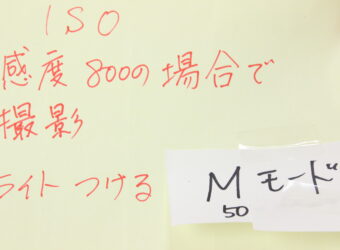 ISO
感度800の場合で
撮影
ライトつける
Mモード
50